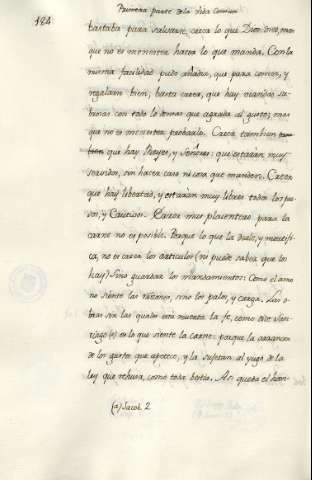 184
Primera parte de la vida Comun
bastaba para salvarse, creer lo que Dios dice, mas
que no es menester hacer lo que manda. Con la
misma facilidad pudo añadir, que para comer, y
regalarse bien, basta creer, que hay viandas sa-
brosas con todo lo demas que agrada al gusto; mas
que no es menester probarla. Creer tambien
que hay Reyes, y Señores: que estarian muy
honrados, sin hacer caso ni una que manden. Creer
que hay libertad, y estarian muy libres todos los pre-
sos, y Cautivos. Razon mas placentera para la
carne no es posible. Porque lo que la duele, y mortifi-
ca, no es creer los articulos (ni puede saber que los
hay) sino guardar los mandamientos: Como el asno
no siente las razones, sino los palos, y carga. Las o-
bras sin las quales está muerta la fe, como dice San-
tiago (a) es lo que siente la carne: porque la arrancan
de los gustos que apetece, y la sujetan al yugo de la
ley que rehusa, como toda bestia. A
(a) Jacob. 2